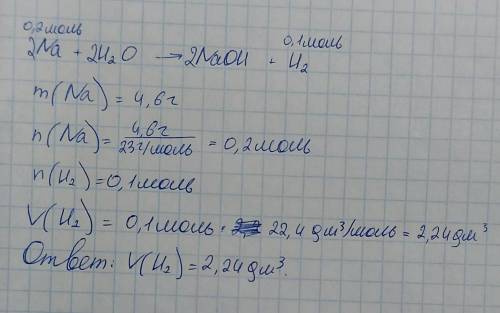 0,2моль 0,1моль
2Na + 2H₂O → 2NaOH + H₂
m(Na) = 4,6г
n(Na) = 4,6г / 23г/моль = 0,2моль
n(H₂) = 0,1моль
V(H₂) = 0,1моль · 22,4 дм³/моль = 2,24дм³
Ответ: V(H₂) = 2,24дм³.